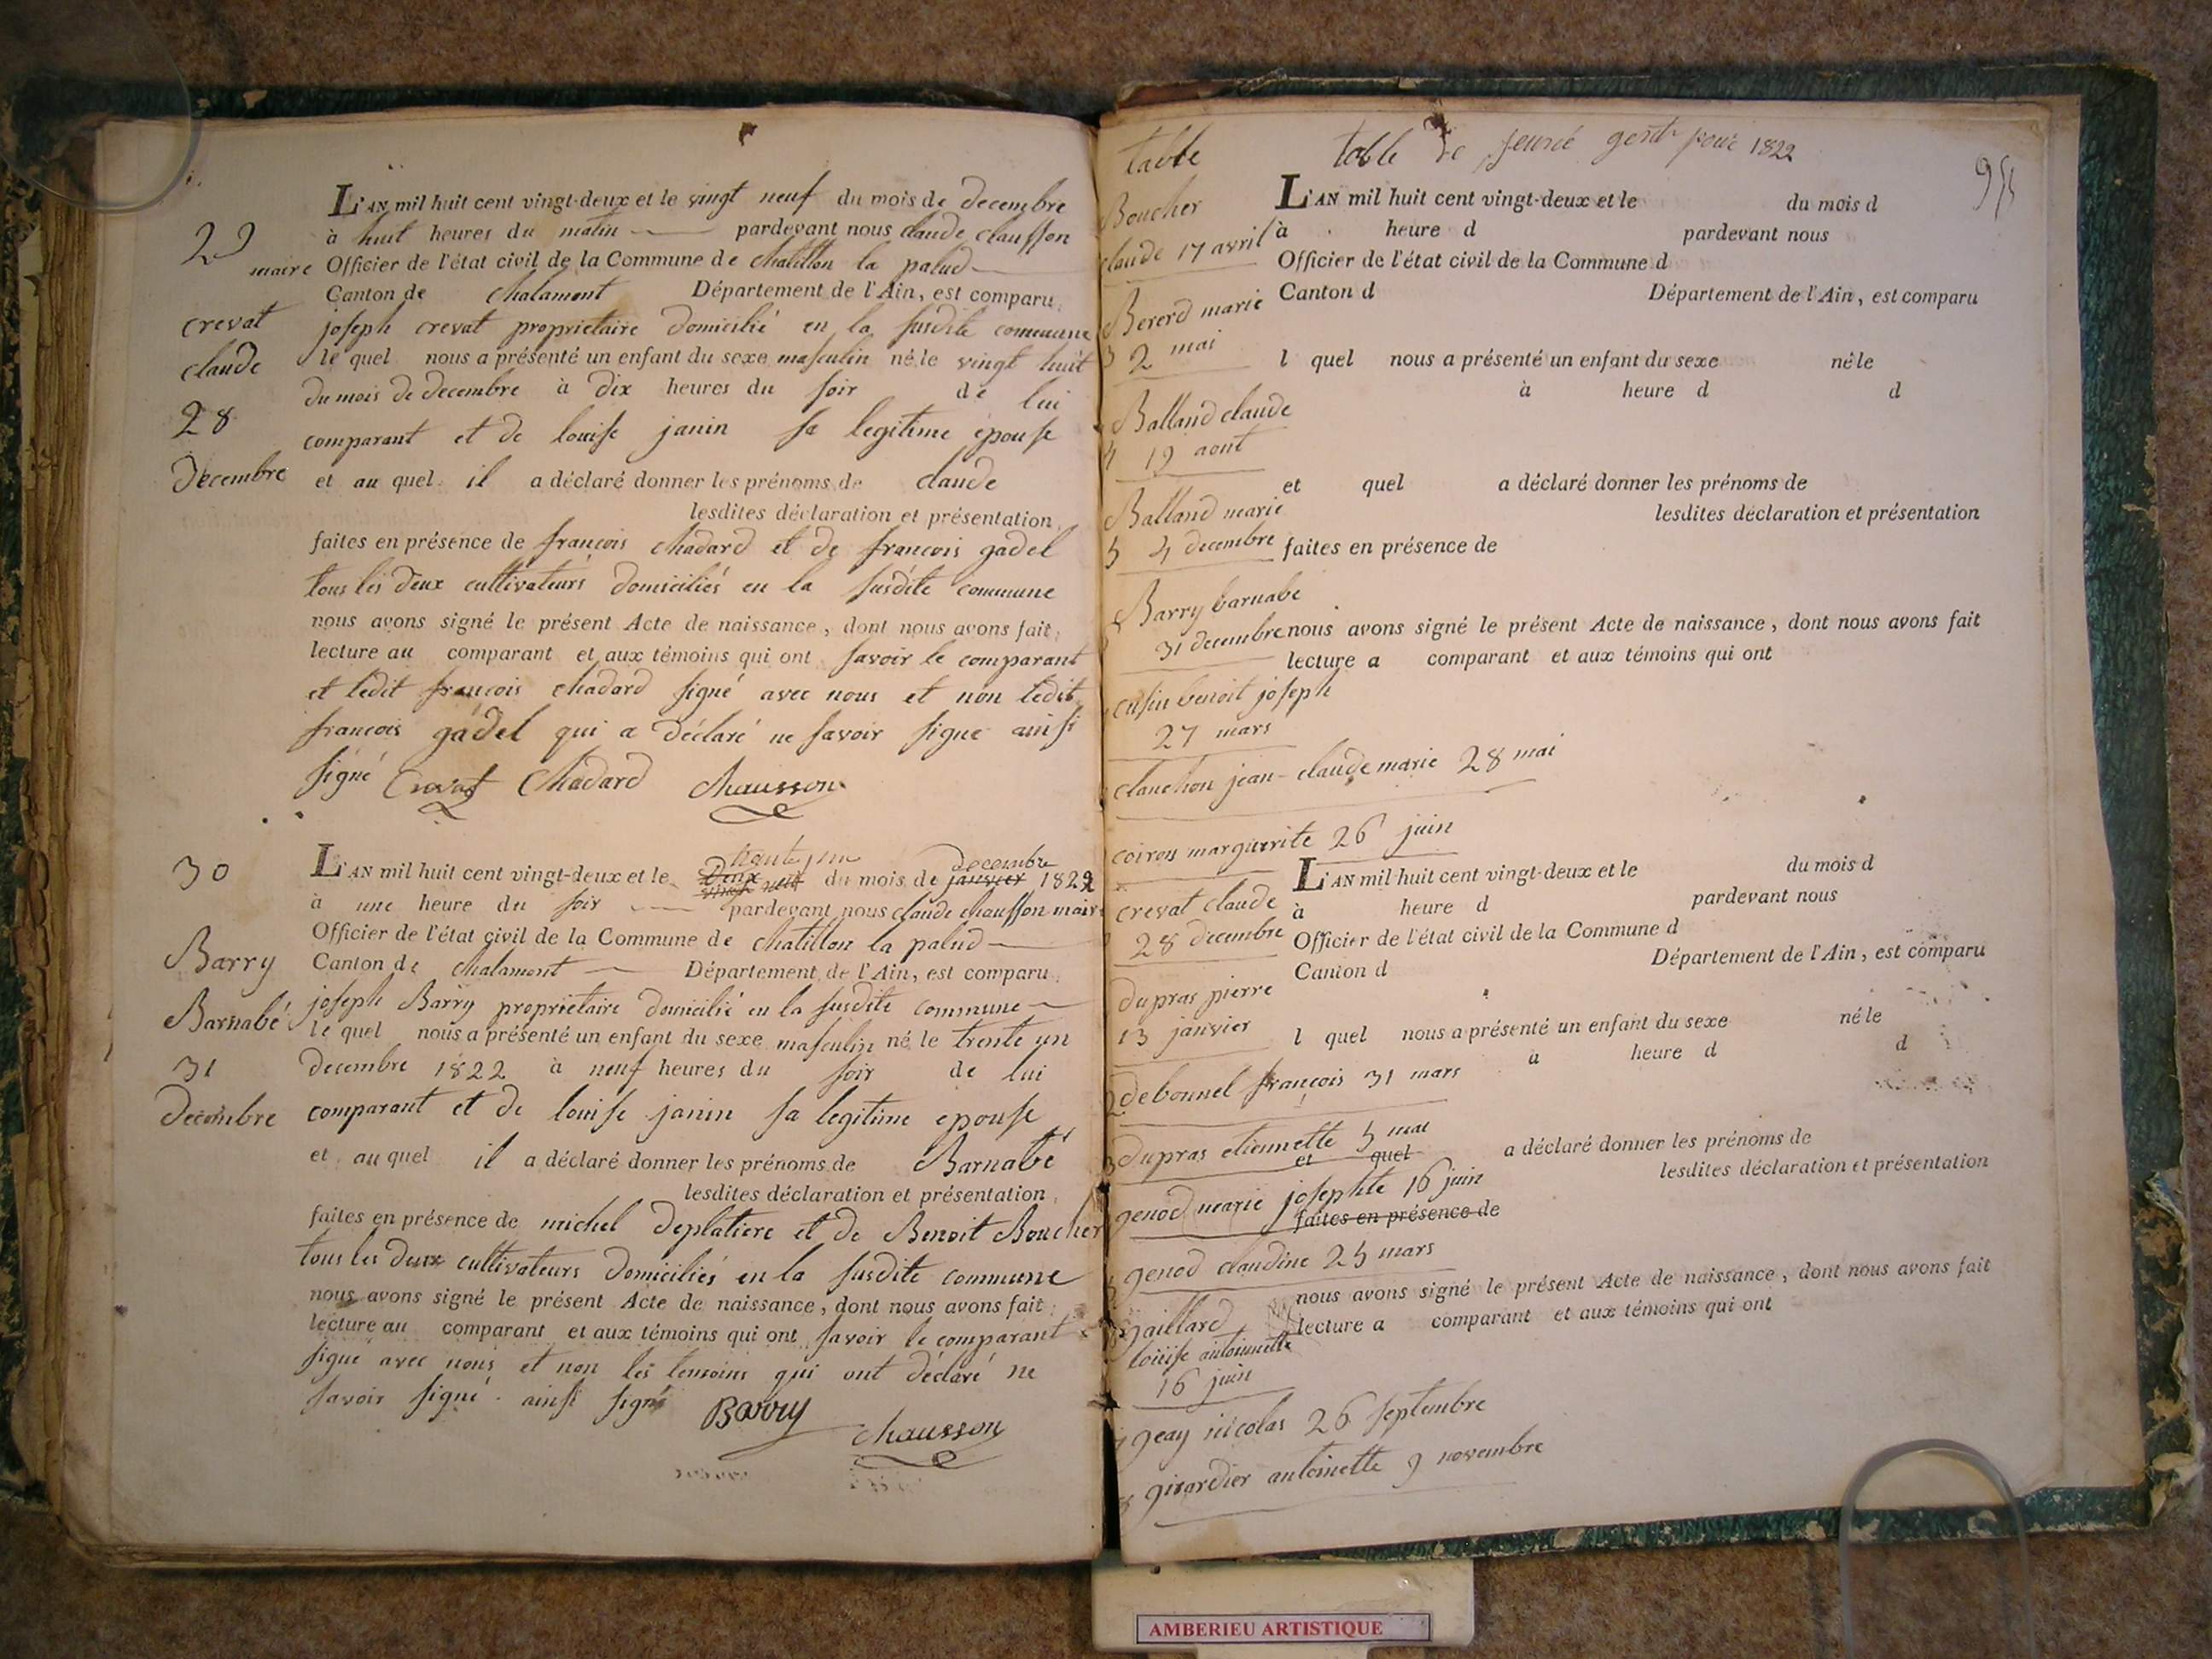 29
crevat
claude
28
decembre
L'AN mil huit cent vingt-deux et le vingt neuf du mois de decembre
à huit heures du matin pardevant nous claude chausson
maire Officier de l'état civil de la Commune de chatillon la palud
Canton de chalamont Département de l'Ain, est comparu
joseph crevat proprietaire domicilié en la susdite commune
le quel nous a présenté un enfant du sexe masculin né le vingt huit
du mois de decembre à dix heures du soir de lui
comparant et de louise janin sa legitime épouse
et au quel il a déclaré donner les prénoms de claude
lesdites déclaration et présentation
faites en présence de françois chadard et de françois gadel
tous les deux cultivateurs domiciliés en la susdite commune
nous avons signé le présent Acte de naissance, dont nous avons fait
lecture au comparant et aux témoins qui ont savoir le comparant
et ledit françois chadard signé avec nous et non ledit
françois gadel qui a déclaré ne savoir signe ainsi
signé Crevat Chadard Chausson
30
Barry
Barnabé
31
decembre
trente un decembre
L'AN mil huit cent vingt-deux et le deux du mois de janvier 1822
à une heure du soir pardevant nous claude chausson maire
Officier de l'état civil de la Commune de chatillon la palud
Canton de chalamont Département de l'Ain, est comparu
joseph Barry proprietaire domicilié en la susdite commune
le quel nous a présenté un enfant du sexe masculin né le trente un
decembre 1822 à neuf heures du soir de lui
comparant et de louise janin sa legitime epouse
et au quel il a déclaré donner les prénoms de Barnabé
lesdites déclaration et présentation
faites en présence de michel deplatiere et de Benoit Boucher
tous les deux cultivateurs domiciliés en la susdite commune
nous avons signé le présent Acte de naissance, dont nous avons fait
lecture au comparant et aux témoins qui ont savoir le comparant
signé avec nous et non les temoins qui ont déclaré ne
savoir signé ainsi signé Barry
Chausson
table
table de pour 1822
Boucher
claude 17 avril
Bererd marie
2 mai
Balland claude
19 aout
Balland marie
4 decembre
Barry barnabe
31 decembre
cusin benoit joseph
27 mars
clanchon jean-claude marie 28 mai
coiron marguerite 26 juin
crevat claude
28 decembre
dupras pierre
13 janvier
debonnel françois 31 mars
dupras etiennette 5 mai
genod marie josephte 16 juin
genod claudine 25 mars
gaillard
louise antoinette
16 juin
geay nicolas 26 septembre
girardier antoinette 9 novembre
L'AN mil huit cent vingt-deux et le du mois d
à heure d pardevant nous
Officier de l'état civil de la Commune d
Canton d Département de l'Ain, est comparu
l quel nous a présenté un enfant du sexe né le
à heure d d
et quel a déclaré donner les prénoms de
lesdites déclaration et présentation
faites en présence de
nous avons signé le présent Acte de naissance, dont nous avons fait
lecture a comparant et aux témoins qui ont
L'AN mil huit cent vingt-deux et le du mois d
à heure d pardevant nous
Officier de l'état civil de la Commune d
Canton d Département de l'Ain, est comparu
l quel nous a présenté un enfant du sexe né le
à heure d d
et quel a déclaré donner les prénoms de
lesdites déclaration et présentation
faites en présence de
nous avons signé le présent Acte de naissance, dont nous avons fait
lecture a comparant et aux témoins qui ont
AMBERIEU ARTISTIQUE